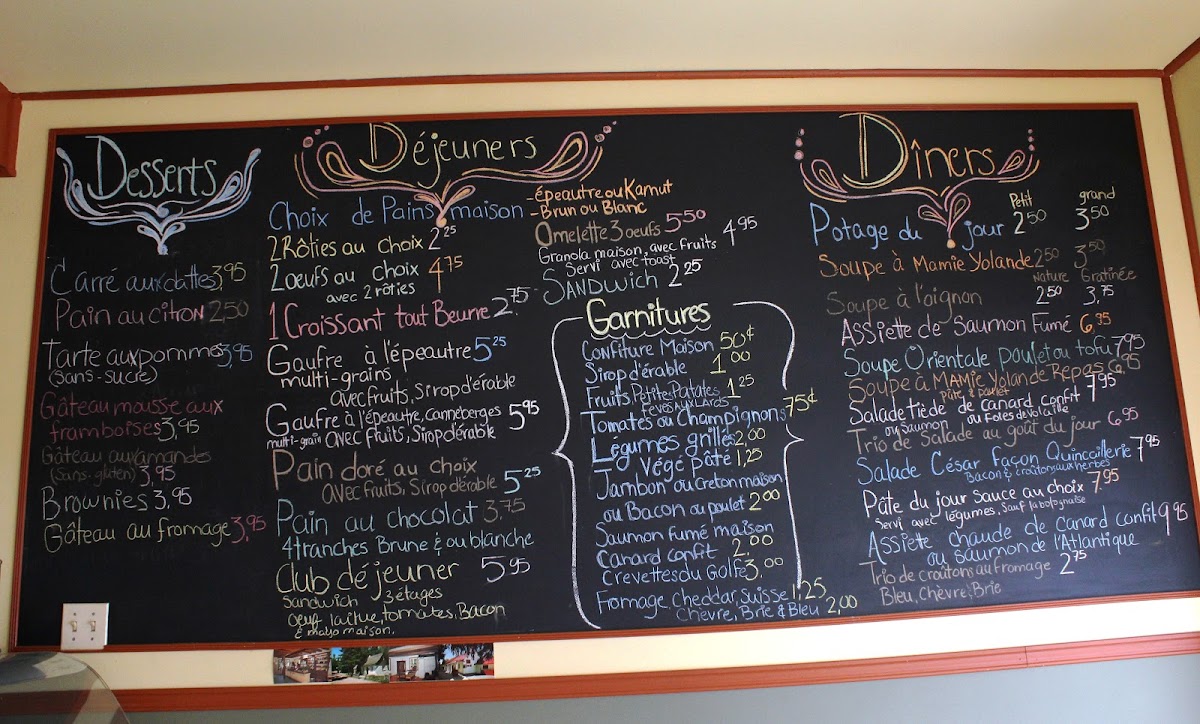 Desserts
Carré aux dattes 3,95
Pain au citron 2,50
Tarte aux pommes 3,95
(sans-sucre)
Gâteau mousse aux
framboises 3,95
Gâteau aux amandes
(sans-gluten) 3,95
Brownies 3,95
Gâteau au fromage 3,95
Déjeuners
Choix de Pains maison
- épeautre ou Kamut
- Brun ou Blanc
2 Rôties au choix 2 25
2 oeufs au choix 4 75
avec 2 rôties
1 Croissant tout Beurre 2,75
Gaufre à l'épeautre 5 25
multi-grains
avec fruits, Sirop d'érable
Gaufre à l'épeautre, canneberges 5 95
multi-grain avec fruits, Sirop d'érable
Pain doré au choix
avec fruits, Sirop d'érable 5 25
Pain au chocolat 3,75
4 tranches Brune & ou blanche
Club déjeuner 5 95
Sandwich 3 étages
oeuf, laitue, tomates, Bacon
& mayo maison,
Omelette 3 oeufs 5 50
Granola maison, avec fruits 4 95
Servi avec toast
Sandwich 2 25
Garnitures
Confiture Maison 50¢
Sirop d'érable 1 00
Fruits Petites Patates 1 25
Feves aux Lards
Tomates ou Champignons 75¢
Légumes grillés 2,00
Végé Pâté 1,25
Jambon ou Creton maison
ou Bacon ou poulet 2 00
Saumon fumé maison
Canard confit 2,00
Crevettes du Golfe 3,00
Fromage, cheddar, Suisse 1,25
Chèvre, Brie & Bleu 2,00
Dîners
Petit grand
Potage du jour 2 50 3 50
Soupe à Mamie Yolande 2 50 3 50
Nature Gratinée
Soupe à l'oignon 2 50 3,75
Assiette de Saumon Fumé 6,95
Soupe Orientale poulet ou tofu 7 95
Soupe à Mamie Yolande Repas 6,95
pâte & poulet
Salade Tiède de canard confit 7 95
ou Saumon ou Foies de volaille
Trio de Salade au goût du jour 6,95
Salade César Façon Quincaillerie 7,95
Bacon & croûtons aux herbes
Pâte du jour sauce au choix 7,95
Servi avec légumes, sauf la bolognaise
Assiete chaude de Canard confit 9 95
ou saumon de l'Atlantique
Trio de croûtons au fromage 2 75
Bleu, Chèvre, Brie